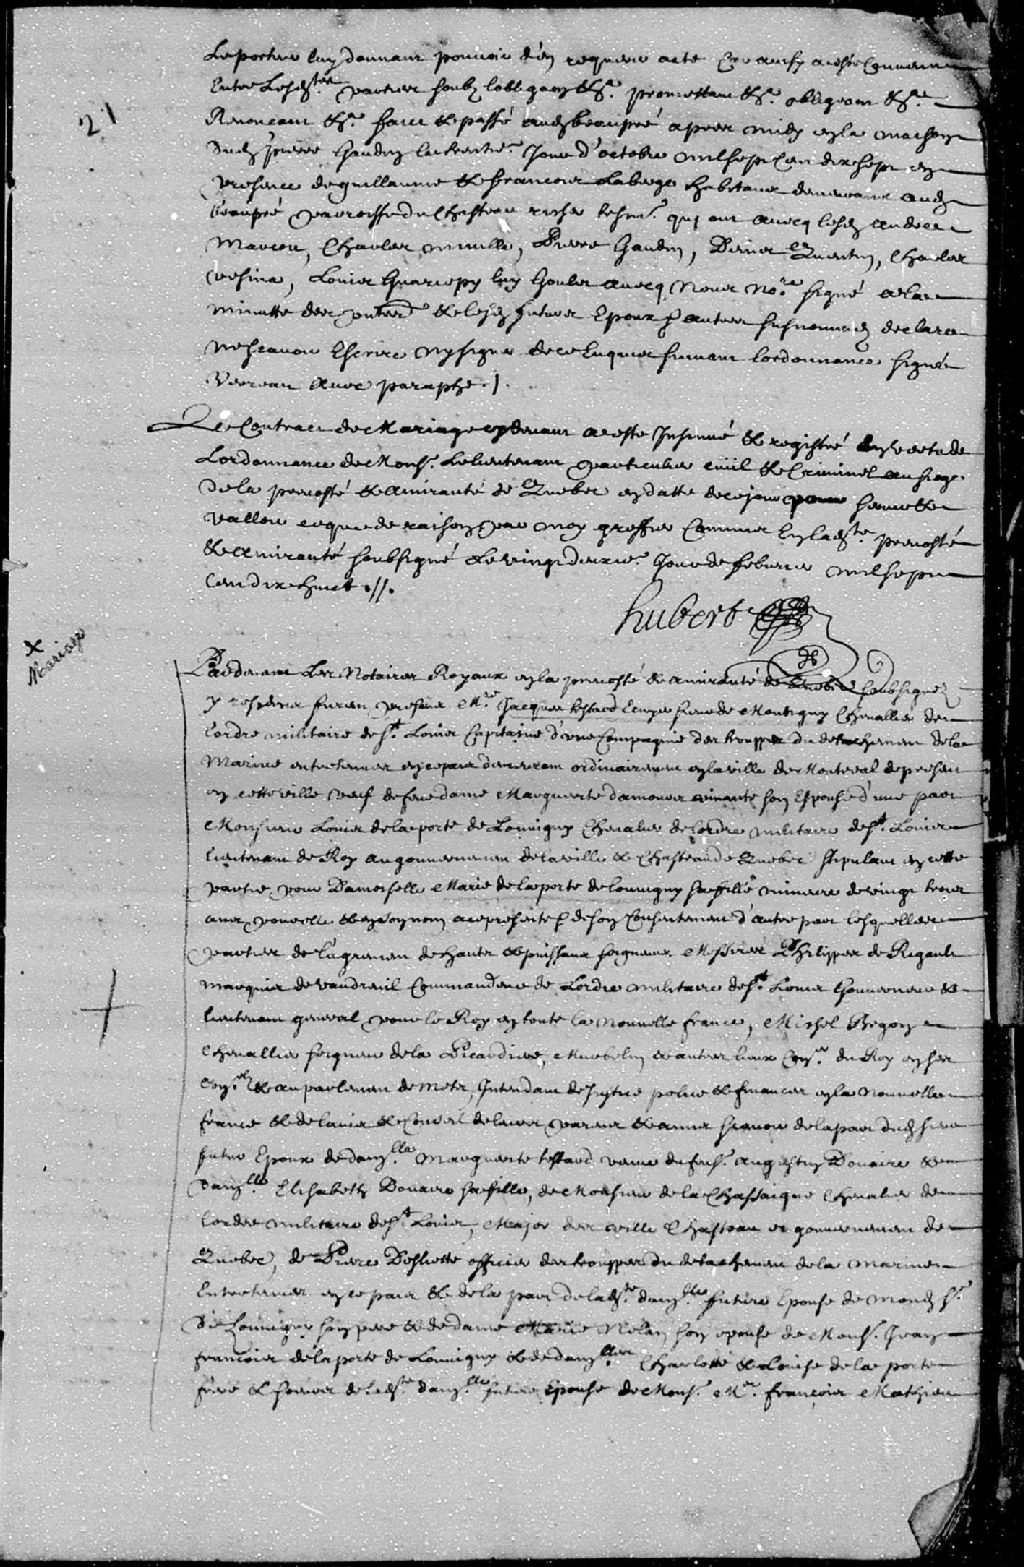 21
Le porteur luy donnant pouvoir d'en requerir acte Car ainsy a esté Convenu
Entre Lesd. parties soubz lobligaon &a. promettant &a. obligeant &a.
Renonceant &a. faict & passé aud beaupré apres midy en la maison
dud pierre Gaudin le trentie. Jour d'octobre mil sept Cens dix sept en
presence de guillaume & francois Laberge habitans demeurans aud
beaupré parroisse du Chasteau richer tesms. qui ont avecq lesd
Marcou, Charles, Pierre Gaudin, Quentin, Charles
vesina, Louis Guariepy avecq Nous Nore. signé a la
minutte des pntes & lesd futurs Epoux & autres susnommez declaré
ne scavoir Escrire ny signer de ce Enquis suivant lordonnance signé
Verreau avec paraphe ./.
Le Contract de Mariage cy devant a esté Insinué & registré en vertu de
Lordonnance de Mons. Le lieutenant particulier civil & Criminel au siege
de la prevosté & amirauté de Quebec en datte de ce jour pour servir &
valloir ce que de raison par moy greffier Commis En lade. prevosté
& amirauté soubsigné Le vingt deuxie. Jour de febvrier mil sept
Cens dix huict .//.
hubert
X
Mariage
Pardevant Les Notaires Royaux en la prevosté & amirauté de Quebec soubsignez
y residens furent presens Mre. Jacques testard Ecuyer sieur de Montigny Chevallier de
L'ordre militaire de St. Louis Capitaine d'une Compagnie des trouppes du detachement de la
Marine entretenues en ce pais demeurant ordinairement en la ville de Montreal de present
en cette ville veuf de feue dame Marguerite damours vivante son Espouse d'une part
Monsieur Louis de la porte de Louvigny Chevalier de L'ordre militaire de St. Louis
lieutenant de Roy au gouvernement de la ville & Chasteau de Quebec stipulant en cette
partie pour Damoiselle Marie de la porte de louvigny sa fille mineure de vingt trois
ans pour elle & en son nom a ce presente & de son Consentement d'autre part lesquelles
parties de l'agrement de hauts & puissans seigneurs Messires Philippes de Rigault
marquis de vaudreuil Commandeur de Lordre militaire de St. Louis Gouverneur &
lieutenant general pour le Roy en toute la Nouvelle france, Michel Begon
Chevallier seigneur de la Picardiere, Murbelin & autres lieux Conr. du Roy en ses
Conls. & au parlement de Metz, Intendant de Justice police & finances en la Nouvelle
france & de l'avis & Conseil de leurs parens & amis scavoir de la part dud sieur
futur Epoux de damlle Marguerite testard veuve du sr. augustin Douaire &
damlle Elisabeth Douaire sa fille, de Monsieur de la Chassaigne Chevalier de
Lordre militaire de St. Louis, Major des ville Chasteau & gouvernement de
Quebec, de Pierre Desliette officier des trouppes du detachement de la Marine
Entretenues en ce pais & de la part de lade. damlle future Epouse de mond sr.
De Louvigny son pere & de dame Marie Nolan son epouse de Mons. Jean
francois de la porte de Louvigny & de damlles Charlotte & Louise de la porte
frere & soeurs de lade. damlle future Epouse de Mons. Mre. francois Mathieu